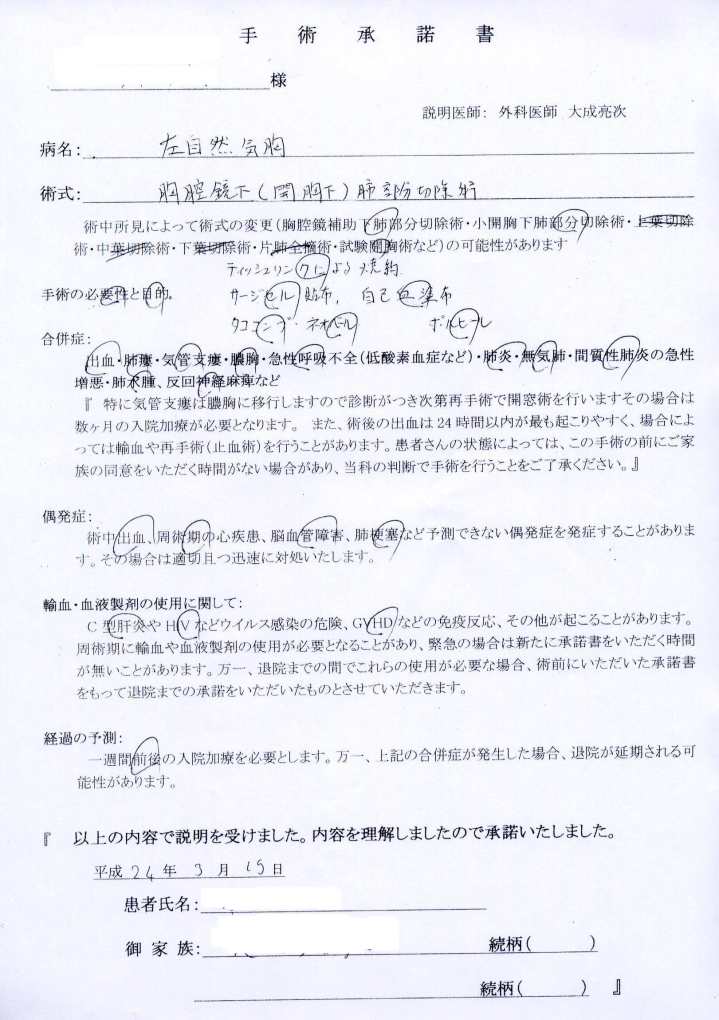 手術承諾書
様
説明医師: 外科医師 大成亮次
病名: 左自然気胸
術式: 胸腔鏡下(開胸下)肺部分切除術
術中所見によって術式の変更(胸腔鏡補助下肺部分切除術・小開胸下肺部分切除術・上葉切除
術・中葉切除術・下葉切除術・片肺全摘術・試験開胸術など)の可能性があります
ティッシュリン クによる 焼灼
手術の必要性と目的。 サージセル 貼布, 自己血塗布
タココンブ・ネオベール ボルヒール
合併症:
出血・肺瘻・気管支瘻・膿胸・急性呼吸不全(低酸素血症など)・肺炎・無気肺・間質性肺炎の急性
増悪・肺水腫、反回神経麻痺など
『 特に気管支瘻は膿胸に移行しますので診断がつき次第再手術で開窓術を行いますその場合は
数ヶ月の入院加療が必要となります。 また、術後の出血は24時間以内が最も起こりやすく、場合によ
っては輸血や再手術(止血術)を行うことがあります。患者さんの状態によっては、この手術の前にご家
族の同意をいただく時間がない場合があり、当科の判断で手術を行うことをご了承ください。』
偶発症:
術中出血、周術期の心疾患、脳血管障害、肺梗塞など予測できない偶発症を発症することがありま
す。その場合は適切且つ迅速に対処いたします。
輸血・血液製剤の使用に関して:
C型肝炎やHIVなどウイルス感染の危険、GVHDなどの免疫反応、その他が起こることがあります。
周術期に輸血や血液製剤の使用が必要となることがあり、緊急の場合は新たに承諾書をいただく時間
が無いことがあります。万一、退院までの間でこれらの使用が必要な場合、術前にいただいた承諾書
をもって退院までの承諾をいただいたものとさせていただきます。
経過の予測:
一週間前後の入院加療を必要とします。万一、上記の合併症が発生した場合、退院が延期される可
能性があります。
『 以上の内容で説明を受けました。内容を理解しましたので承諾いたしました。
平成 24 年 3 月 15 日
患者氏名:
御家族: 続柄( )
続柄( ) 』